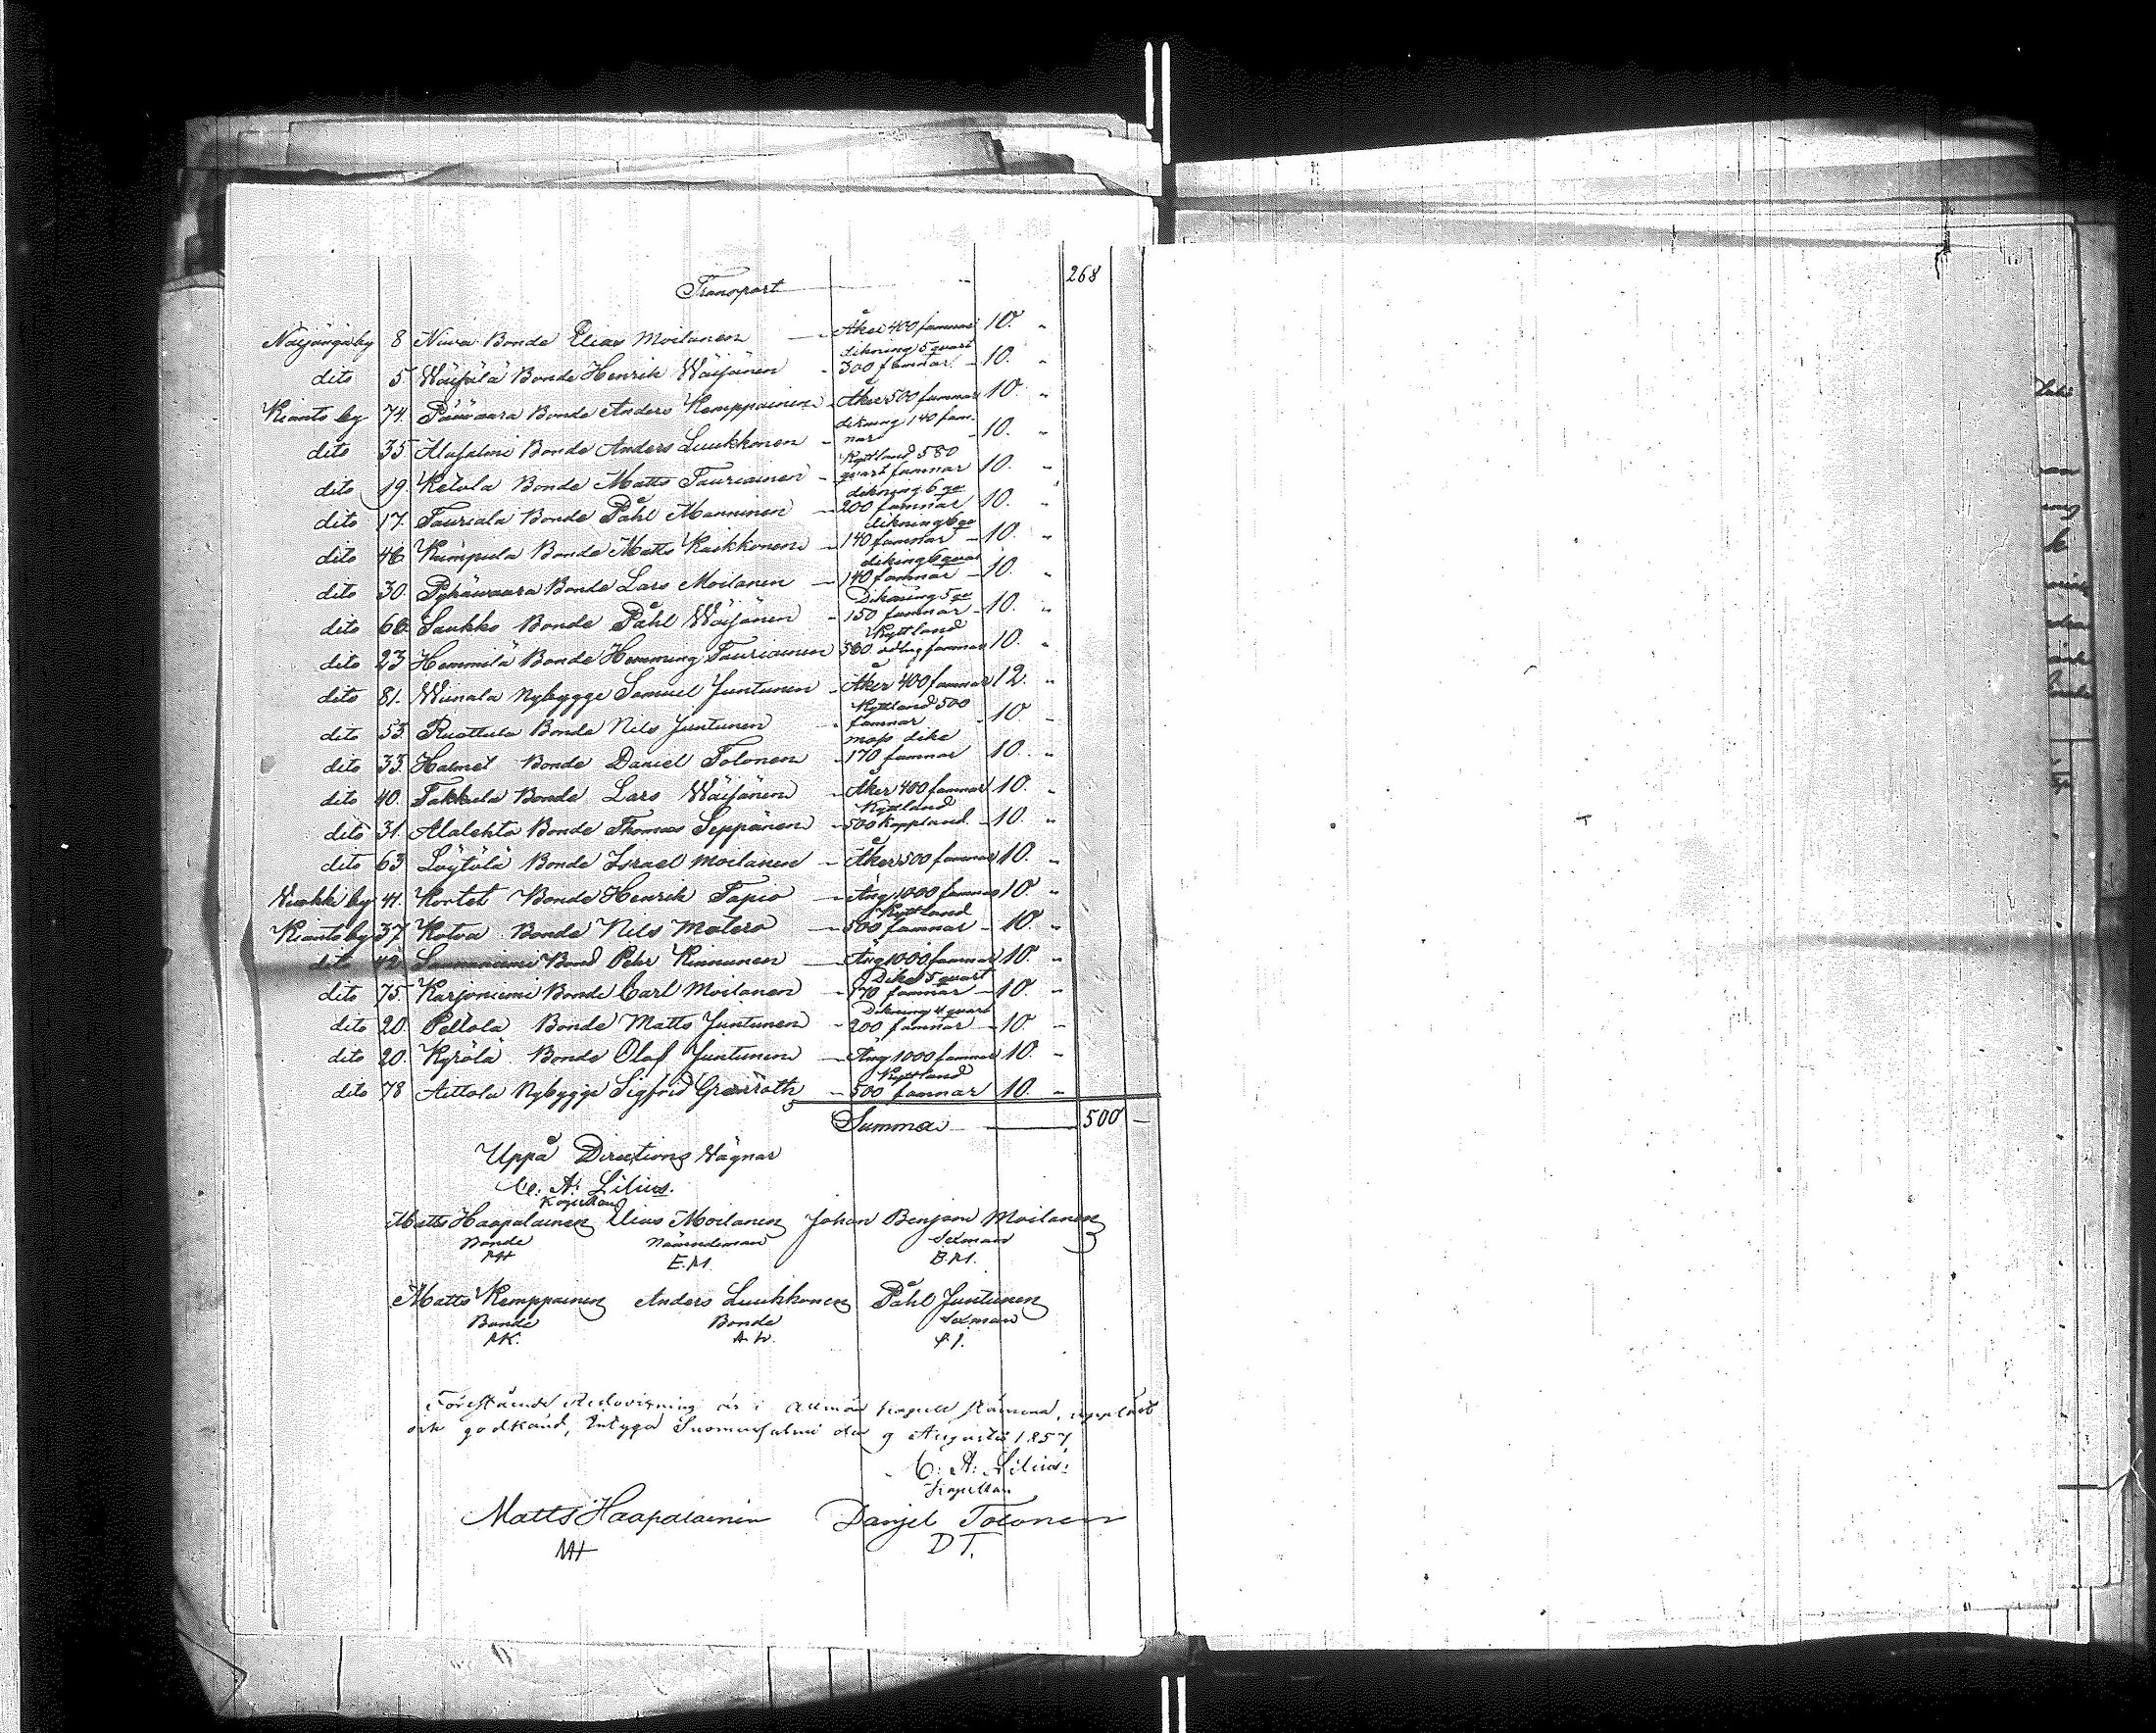 Transport - 268
Näljänga by 8 Niwa Bonde Elias Moilanen - Åker 400 famnar 10. "
dito 5. Wäijälä Bonde Henrik Wäijänen - dikning 5 quart 300 famnar - 10. "
Kianto by 74. Pääwaara Bonde Anders Kemppainen - Åker 500 famnar 10. "
dito 35 Alajalmi Bonde Anders Luukkonen - dikning 140 famnar - 10. "
dito 19. Ketola Bonde Matts Tauriainen - Kyttland 580 quart famnar 10. "
dito 17. Tauriala Bonde Påhl Manninen - dikning 6 qu 200 famnar 10. "
dito 46. Kumpula Bonde Matts Keikkonen - dikning 6 qu 140 famnar - 10. "
dito 30. Pyhäwaara Bonde Lars Moilanen - diking 6 quar 140 famnar - 10. "
dito 60. Saukko Bonde Påhl Wäijänen - Dikning 5 qu 150 famnar - 10. "
dito 23 Hemmilä Bonde Hemming Tauriainen Kyttland 580 odling famnar 10. "
dito 81. Wiinala Nybygge Samuel Juntunen - Åker 400 famnar 12. "
dito 53. Ruottula Bonde Nils Juntunen - Kyttland 500 famnar - 10 -
dito 33. Halmet Bonde Daniel Tolonen - moss dike 170 famnar 10. "
dito 40. Takkula Bonde Lars Wäijänen - Åker 400 famnar 10. "
dito 31. Alalehto Bonde Thomas Seppänen - Kyttland 500 Kappland - 10. "
dito 63 Löytölä Bonde Israel Moilanen - Åker 500 famnar 10. "
Wuokki by 41. Kortet Bonde Henrik Tapio - Äng 1000 famnar 10. "
Kianto by 37 Kotva Bonde Nils Matero - Kyttland 500 famnar - 10. "
dito 42 Bond Pehr Kinnunen - Äng 1000 famnar 10. "
dito 75. Karjoniemi Bonde Carl Moilanen - Dike 5 quart 170 famnar - 10. -
dito 20. Peltola Bonde Matts Juntunen - Dikning 4 quart 200 famnar - 10 -
dito 20. Kyrölä Bonde Olof Juntunen - Äng 1000 famnar 10. -
dito 78 Aittola Nybygge Sigfrid Granroth - Kyttland 500 famnar 10. -
Summa 500 -
Uppå Directions Wägnar
C: A: Lilius.
Kapellan
Matts Haapalainen Elias Moilanen Johan Benjam Moilanen
Bonde Nämndeman Sexman
MH E.M. B.M.
Matts Kemppainen Anders Luukkonen Påhl Juntunen
Bonde Bonde Sexman
MK. A L. P J.
Förestående Redovisning är i Allmän Kapell stämma, uppläst
och godkänd, intyga Suomusjalmi den 9 Augusti 1857
C: A: Lilius:
Kapellan
Matts Haapalainin Danjel Tolonen
MH D T.